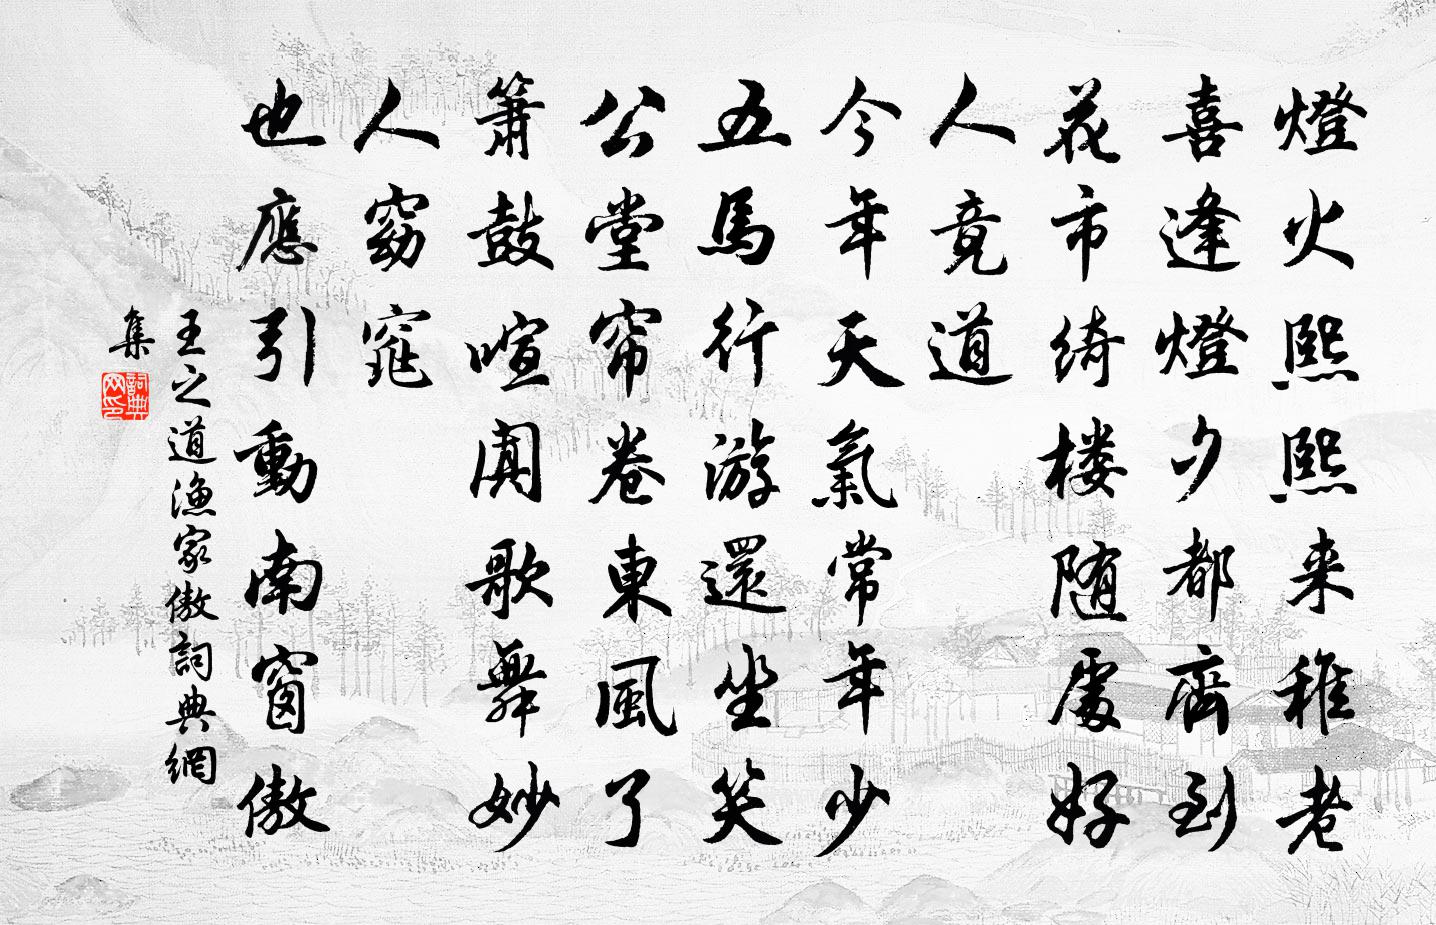 燈火熙熙来稚老
喜逢燈夕都齊到
花市绮楼随處好
人竟道
今年天氣常年少
五馬行游還坐笑
公堂帘卷東風了
簫鼓喧闐歌舞妙
人窈窕
也應引動南窗傲
王之道漁家傲詞典網
集
詞典
网印